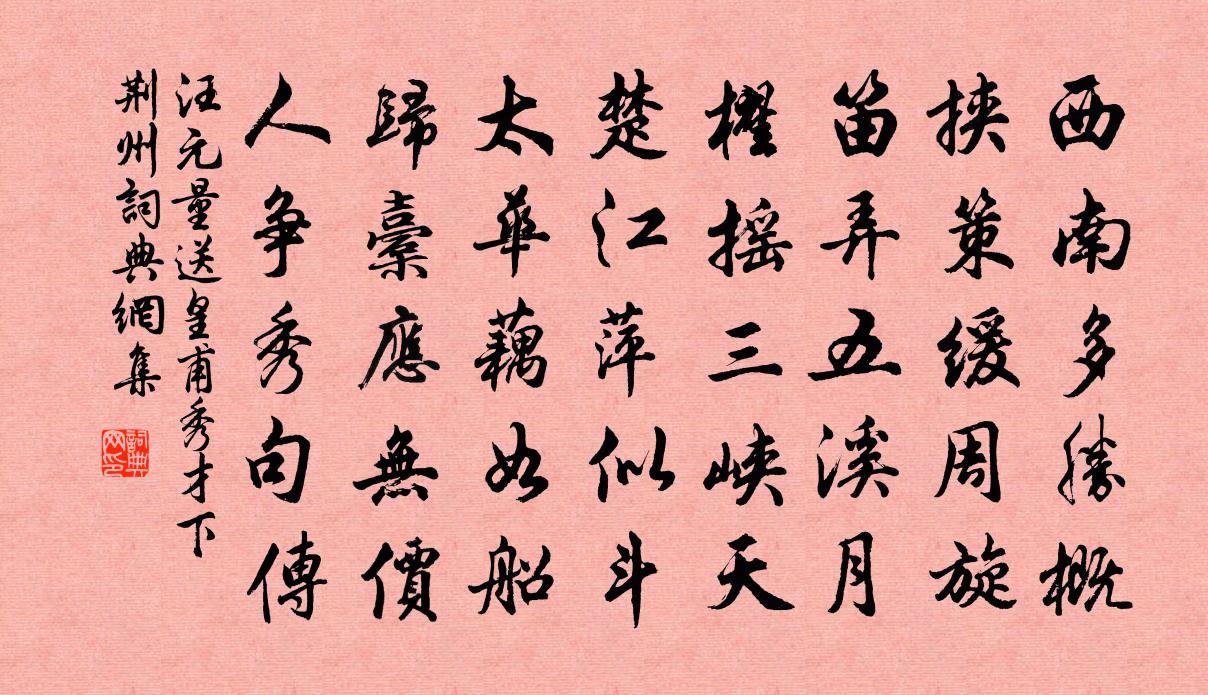 西南多勝概
挾策緩周旋
笛弄五溪月
櫂摇三峽天
楚江萍似斗
太華藕如船
歸橐應無價
人争秀句傳
汪元量送皇甫秀才下
荆州詞典網集
詞典
网印